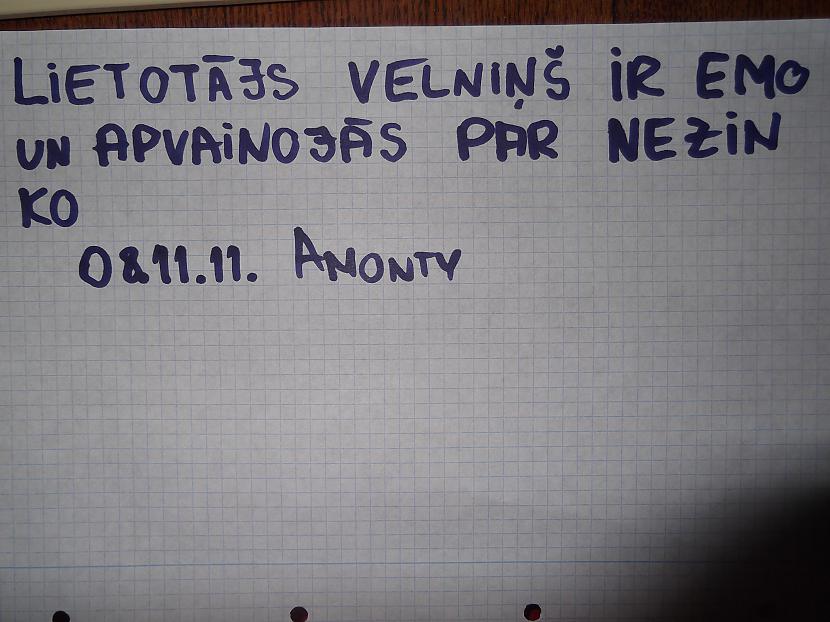 LIETOTĀJS VELNIŅŠ IR EMO
UN APVAINOJĀS PAR NEZIN
KO
08.11.11. ANONTY